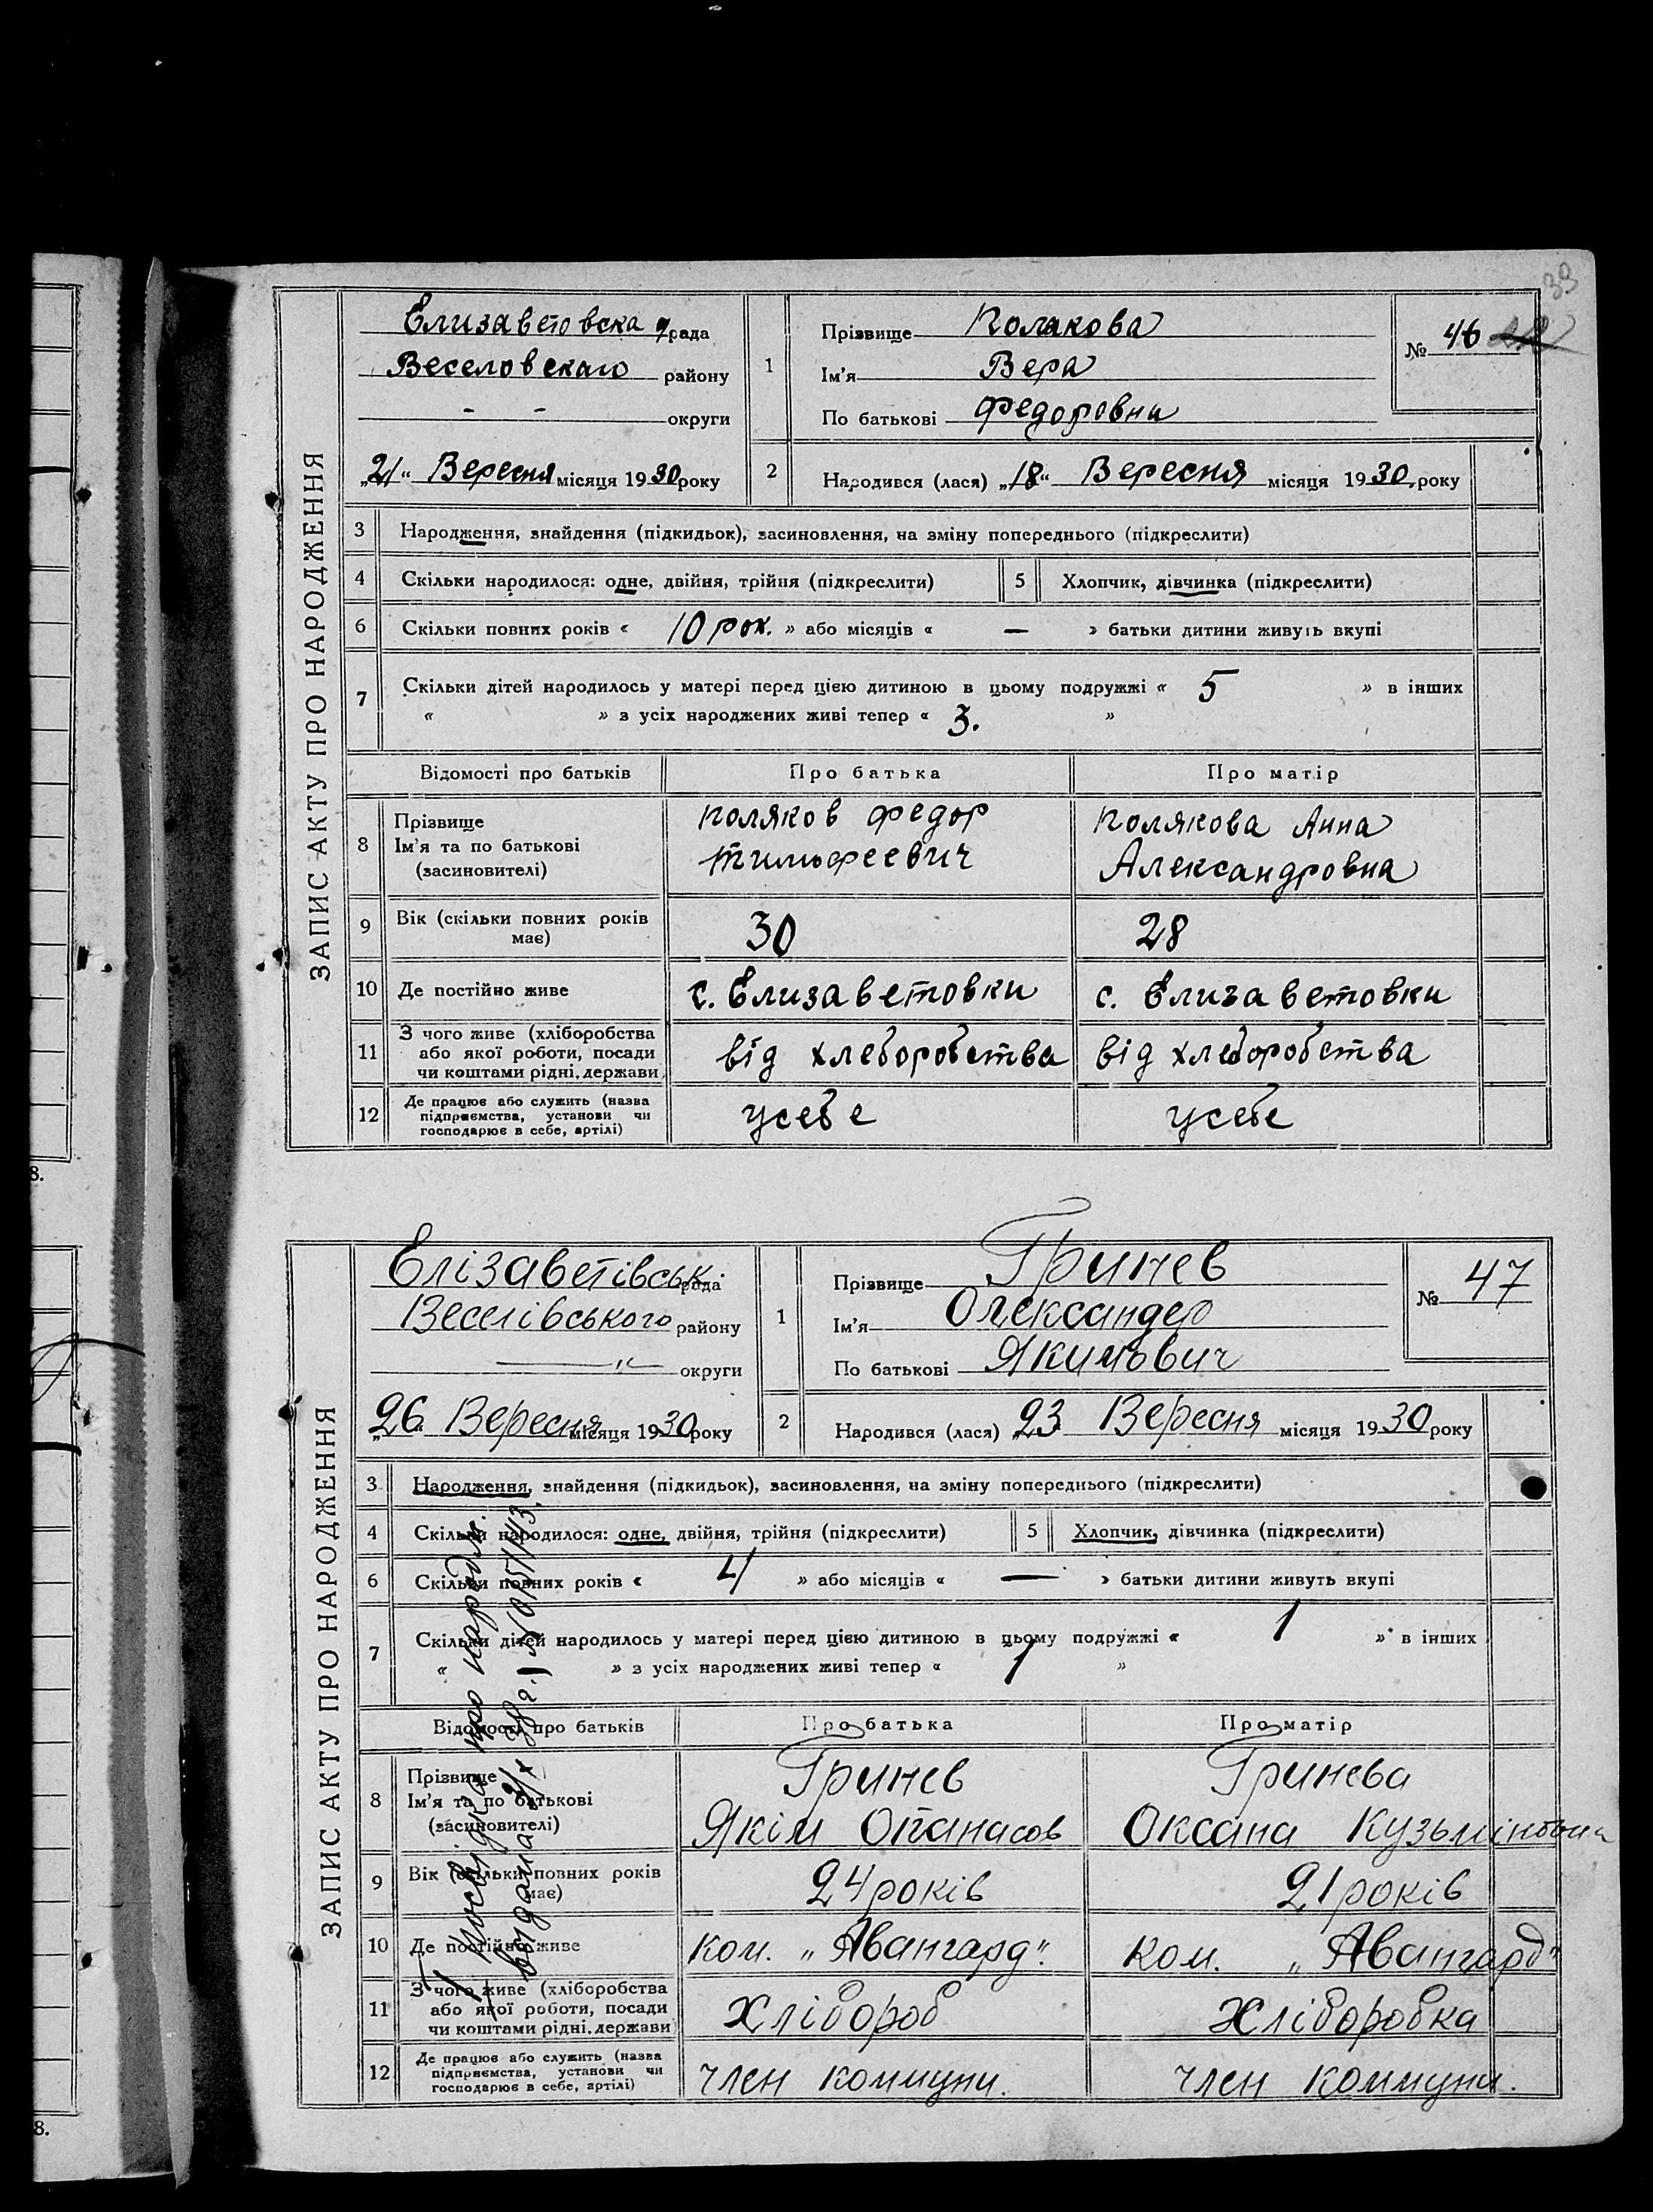 39
ЗАПИС АКТУ ПРО НАРОДЖЕННЯ
Елизаветовска рада
Веселовскаго району
- - округи
„21“ Вересня місяця 1930 року
1 Прізвище Полякова
Ім'я Вера
По батькові Федоровна
№ 46
2 Народився (лася) „18“ Вересня місяця 1930 року
3 Народження, знайдення (підкидьок), засиновлення, на зміну попереднього (підкреслити)
4 Скільки народилося: одне, двійня, трійня (підкреслити) 5 Хлопчик, дівчинка (підкреслити)
6 Скільки повних років « 10 рок. » або місяців « — » батьки дитини живуть вкупі
7 Скільки дітей народилось у матері перед цією дитиною в цьому подружжі « 5 » в інших
« » з усіх народжених живі тепер « 3. »
Відомості про батьків Про батька Про матір
8 Прізвище Ім'я та по батькові (засиновителі)
Поляков Федор Тимофеевич
Полякова Анна Александровна
9 Вік (скільки повних років має) 30 28
10 Де постійно живе с. Елизаветовки с. Елизаветовки
11 З чого живе (хліборобства або якої роботи, посади чи коштами рідні, держави
від хлеборобства від хлеборобства
12 Де працює або служить (назва підприємства, установи чи господарює в себе, артілі)
усебе усебе
8.
ЗАПИС АКТУ ПРО НАРОДЖЕННЯ
Елізаветівськ. рада
Веселівського району
—"— округи
„26 Вересня місяця 1930 року
1 Прізвище Гринев
Ім'я Олександер
По батькові Якимович
№ 47
2 Народився (лася) „23 Вересня місяця 1930 року
3 Народження, знайдення (підкидьок), засиновлення, на зміну попереднього (підкреслити)
4 Скільки народилося: одне, двійня, трійня (підкреслити) 5 Хлопчик, дівчинка (підкреслити)
6 Скільки повних років « 4 » або місяців « — » батьки дитини живуть вкупі
7 Скільки дітей народилось у матері перед цією дитиною в цьому подружжі « 1 » в інших
« » з усіх народжених живі тепер « 1 »
Відомості про батьків Про батька Про матір
8 Прізвище Ім'я та по батькові (засиновителі)
Гринев Якім Опанасов
Гринева Оксана Кузьмінівна
9 Вік (скільки повних років має) 24 років 21 років
10 Де постійно живе ком. „Авангард". ком. „Авангард"
11 З чого живе (хліборобства або якої роботи, посади чи коштами рідні, держави
Хлібороб Хліборобка
12 Де працює або служить (назва підприємства, установи чи господарює в себе, артілі)
член коммуни. член коммуни.
Посвідка про народж.
видана
8.